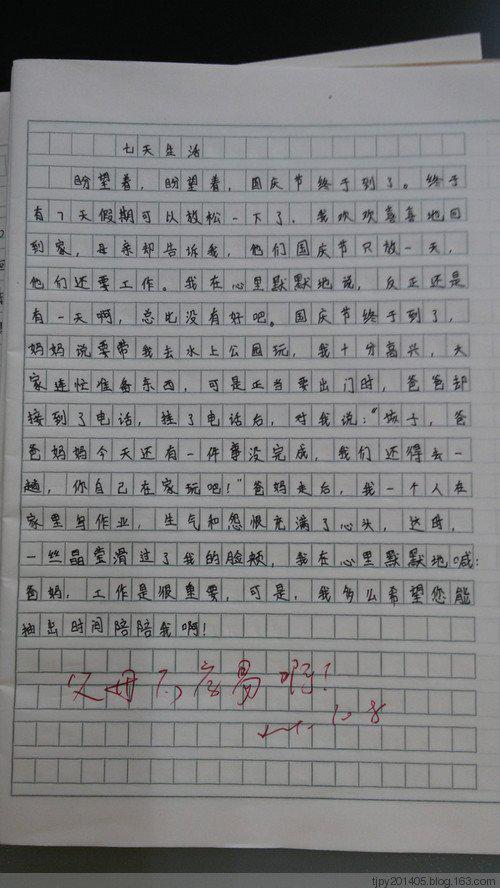 七天生活
盼望着，盼望着，国庆节终于到了。终于
有7天假期可以放松一下了，我欢欢喜喜地回
到家，母亲却告诉我，他们国庆节只放一天，
他们还要工作。我在心里默默地说，反正还是
有一天啊，总比没有好吧。国庆节终于到了，
妈妈说要带我去水上公园玩，我十分高兴，大
家连忙准备东西，可是正当要出门时，爸爸却
接到了电话，挂了电话后，对我说：“孩子，爸
爸妈妈今天还有一件事没完成，我们还得去一
趟，你自己在家玩吧！”爸妈走后，我一个人在
家里写作业，生气和怨恨充满了心头，这时，
一丝晶莹滑过了我的脸颊，我在心里默默地喊：
爸妈，工作是很重要，可是，我多么希望您能
抽出时间陪陪我啊！
父母不容易啊！
10.8
tjpy201405.blog.163.com